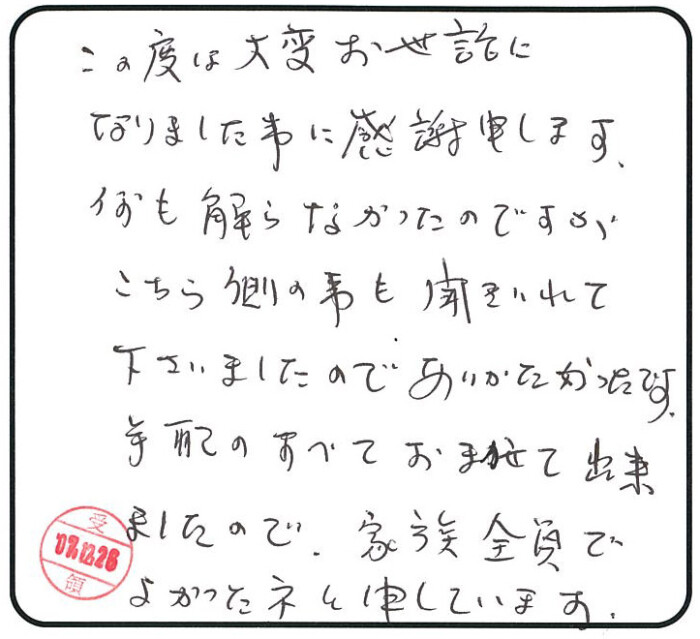 この度は大変お世話に
なりました事に感謝申します、
何も解らなかったのですが
こちら側の事も聞き入れて
下さいましたのでありがたかったです。
手配のすべておまかせで出来
ましたので、家族全員で
よかったネと申しています。
受
07.12.26
領